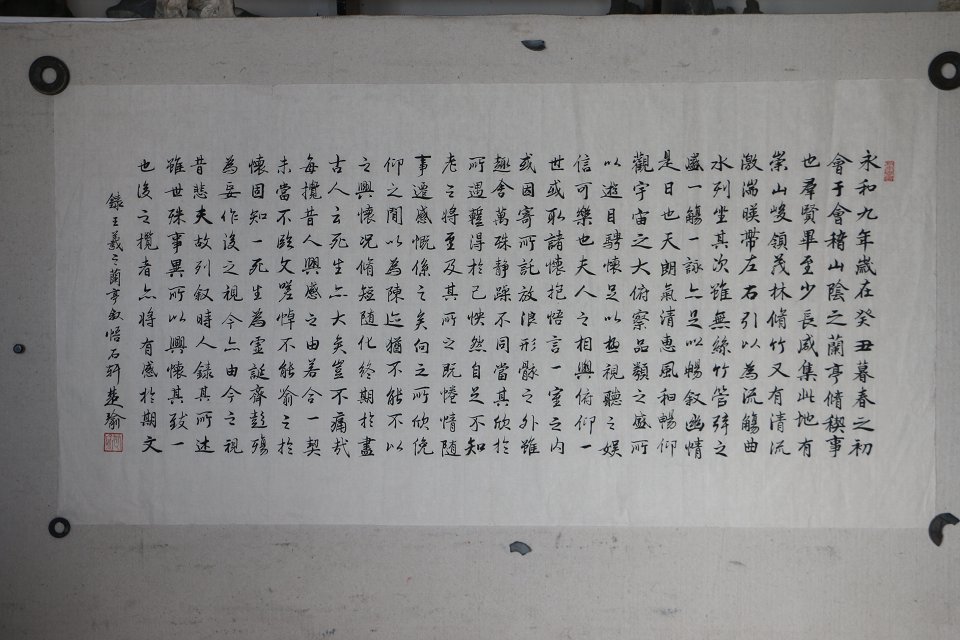 永和九年歲在癸丑暮春之初
會于會稽山陰之蘭亭脩稧事
也羣賢畢至少長咸集此地有
崇山峻領茂林脩竹又有清流
激湍暎帶左右引以為流觴曲
水列坐其次雖無絲竹管弦之
盛一觴一詠亦足以暢叙幽情
是日也天朗氣清惠風和暢仰
觀宇宙之大俯察品類之盛所
以遊目騁懷足以極視聽之娛
信可樂也夫人之相與俯仰一
世或取諸懷抱悟言一室之內
或因寄所託放浪形骸之外雖
趣舍萬殊静躁不同當其欣於
所遇蹔得於己怏然自足不知
老之將至及其所之既惓情隨
事遷感慨係之矣向之所欣俛
仰之閒以為陳迹猶不能不以
之興懷況脩短隨化終期於盡
古人云死生亦大矣豈不痛哉
每攬昔人興感之由若合一契
未嘗不臨文嗟悼不能喻之於
懷固知一死生為虛誕齊彭殤
為妄作後之視今亦由今之視
昔悲夫故列叙時人錄其所述
雖世殊事異所以興懷其致一
也後之攬者亦將有感於斯文
錄王羲之蘭亭叙悟石軒楚喻